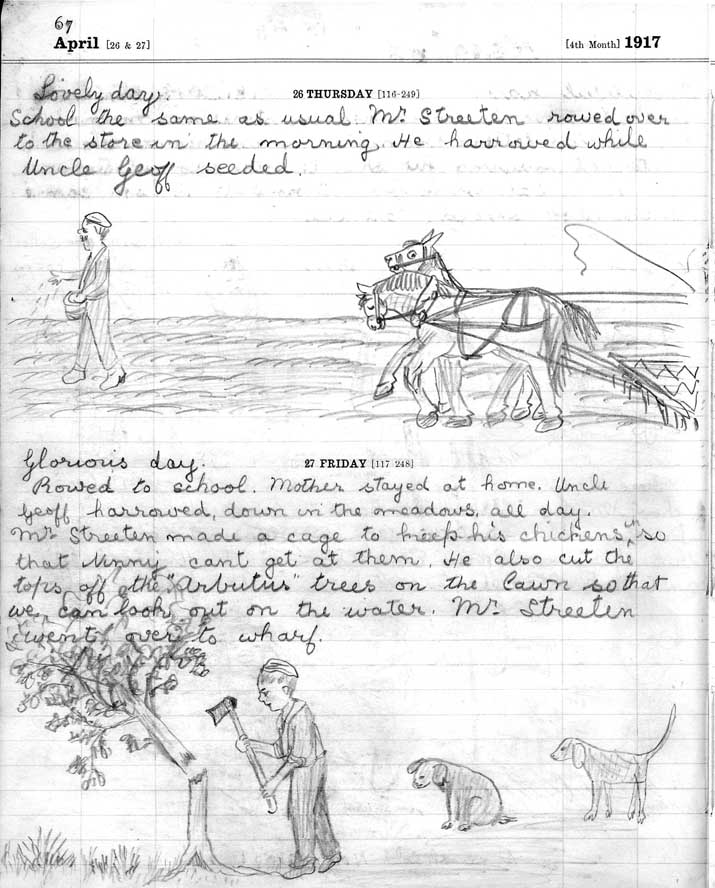 67
April [26 & 27] [4th Month] 1917
Lovely day. 26 THURSDAY [116-249]
School the same as usual. Mr. Streeten rowed over
to the store in the morning. He harrowed while
Uncle Geoff seeded.
Glorious day. 27 FRIDAY [117-248]
Rowed to school. Mother stayed at home. Uncle
Geoff harrowed, down in the meadows, all day.
Mr. Streeten made a cage to keep his chickens, so
that Ninny cant get at them. He also cut the
tops off the "Arbutus" trees on the lawn so that
we can look out on the water. Mr. Streeten
went over to wharf.